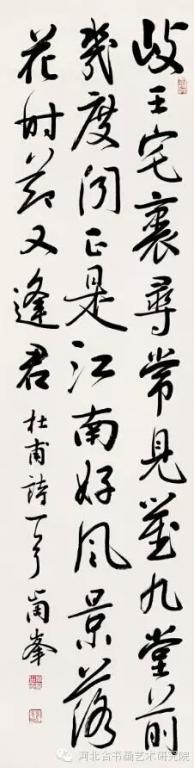 歧王宅裏尋常見崔九堂前
幾度聞正是江南好風景落
花時節又逢君
杜甫詩一首 峯
河北省书画艺术研究院